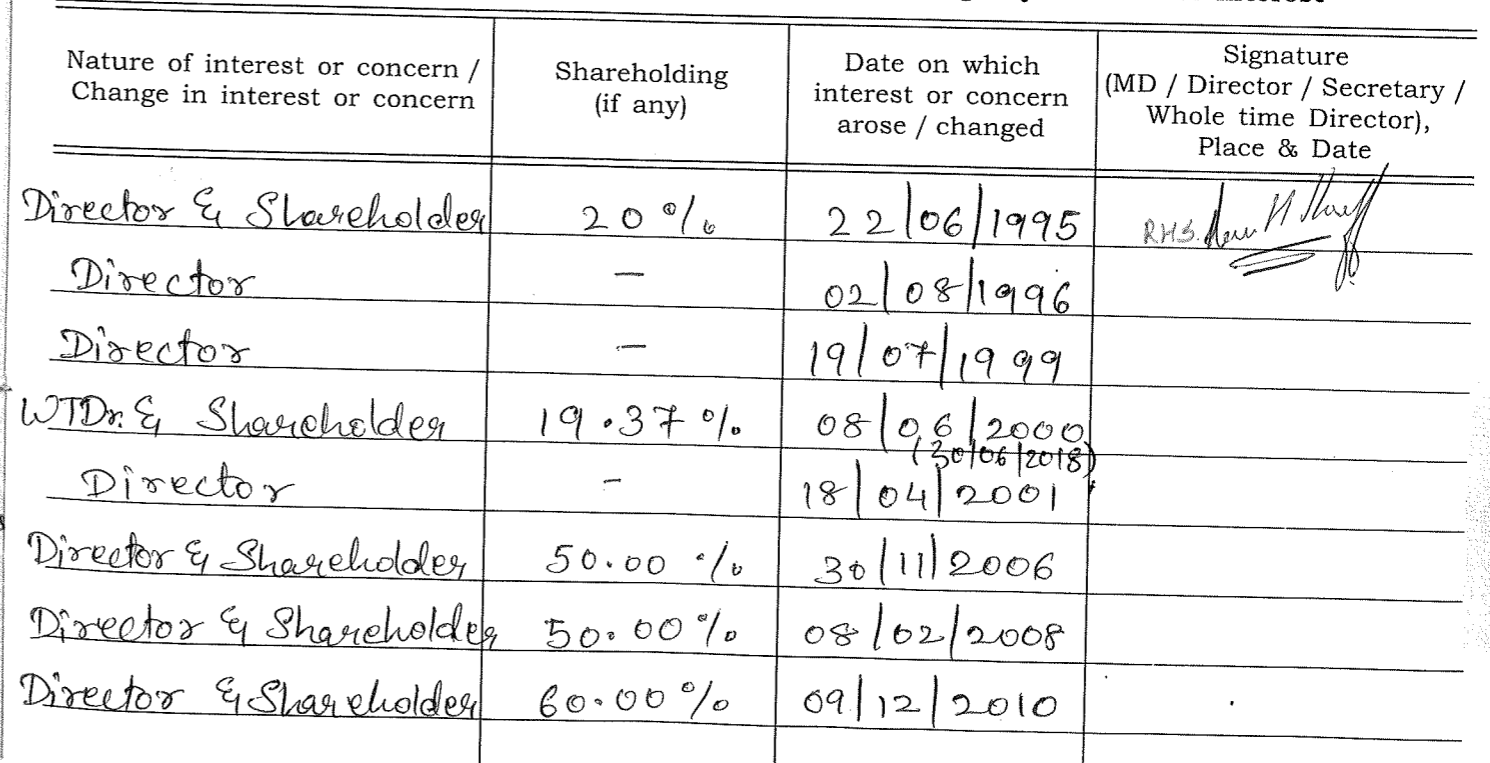 Nature of interest or concern / Change in interest or concern
Shareholding (if any)
Date on which interest or concern arose / changed
Signature (MD / Director / Secretary / Whole time Director), Place & Date
Director & Shareholder 20% 22/06/1995 RHS.
Director – 02/08/1996
Director – 19/07/1999
WTDr. & Shareholder 19.37% 08/06/2000
(30/06/2018)
Director - 18/04/2001
Director & Shareholder 50.00 % 30/11/2006
Director & Shareholder 50.00% 08/02/2008
Director & Shareholder 60.00% 09/12/2010